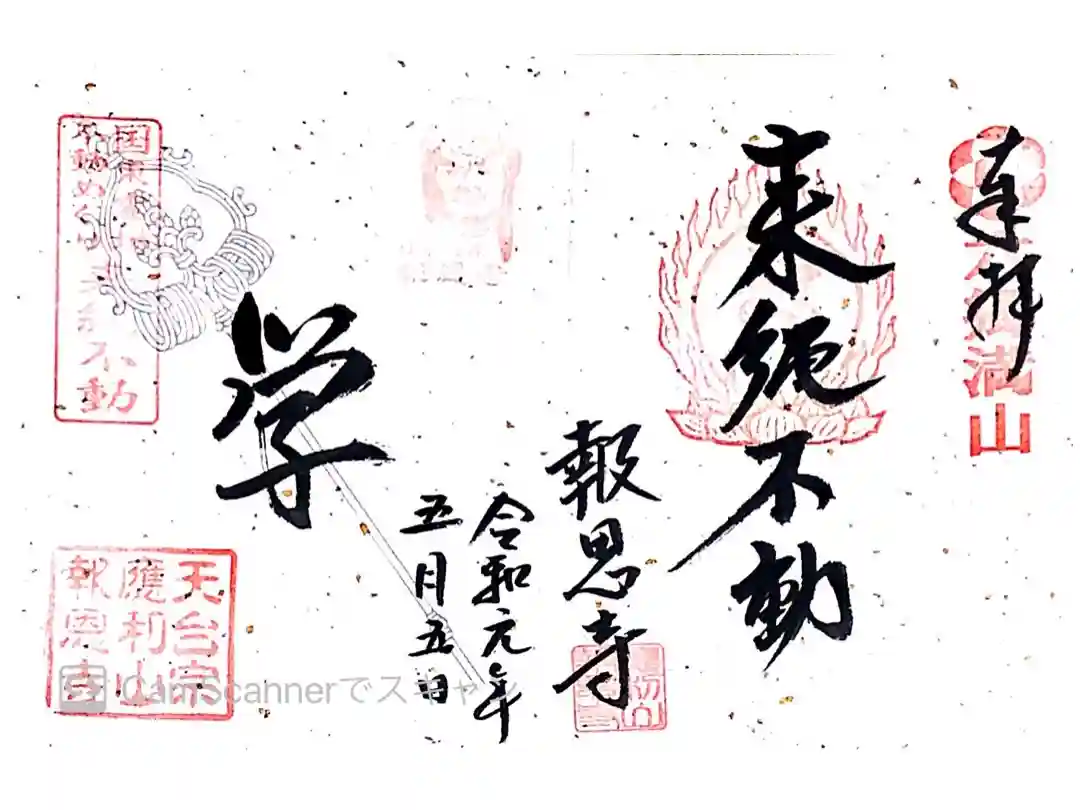 奉拝
満山
来縄不動
報恩寺
令和元年
五月五日
学
国東
不動
天台宗
應利山
報恩寺
CamScannerでスキャン